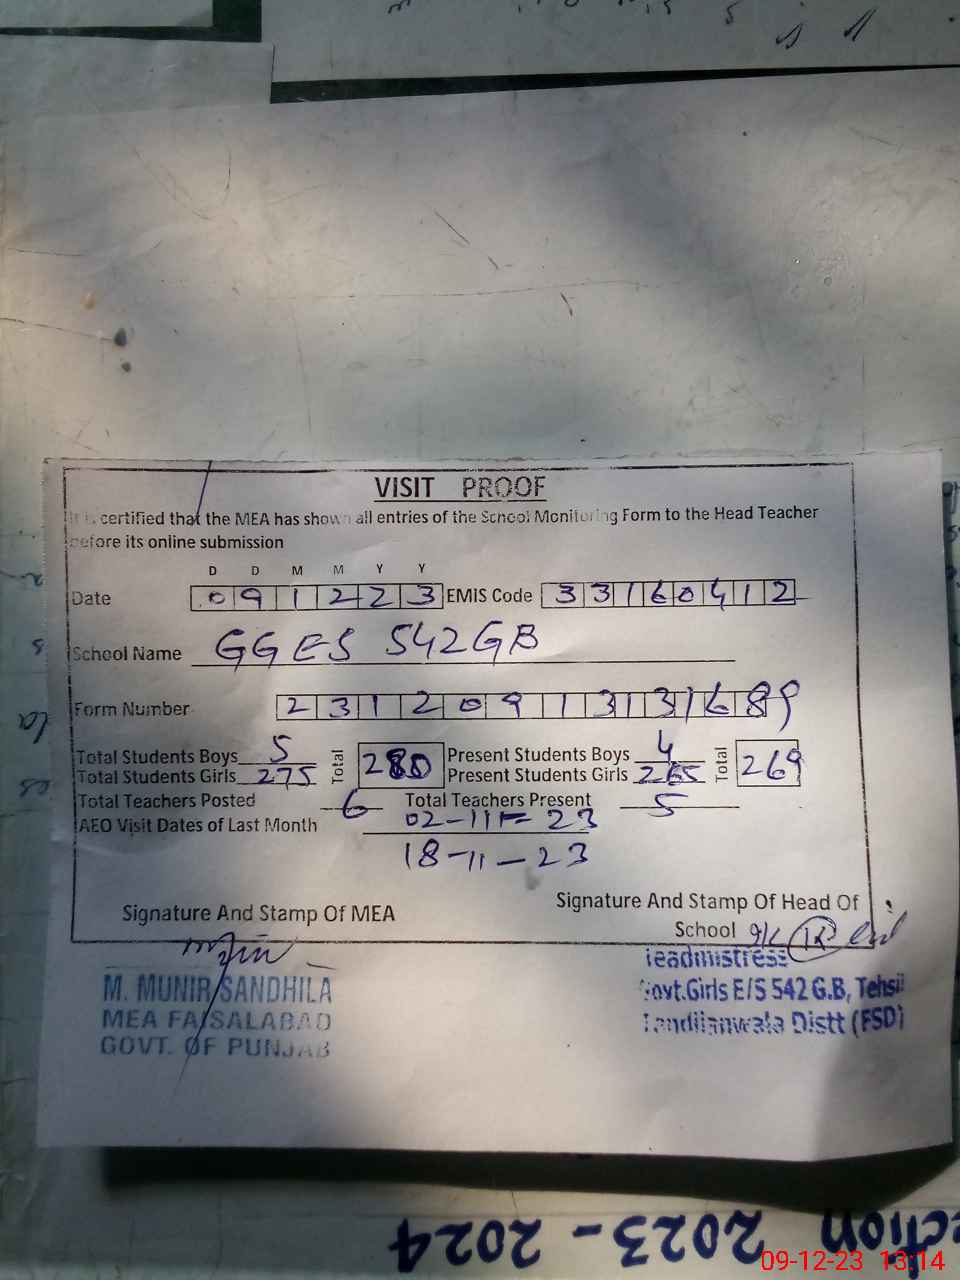 VISIT PROOF
It is certified that the MEA has shown all entries of the School Monitoring Form to the Head Teacher
before its online submission
D D M M Y Y
Date 091223 EMIS Code 33160412
School Name GGES 542GB
Form Number 23120913131689
Total Students Boys 5 Total 280 Present Students Boys 4 Total 269
Total Students Girls 275 Present Students Girls 265
Total Teachers Posted 6 Total Teachers Present 5
AEO Visit Dates of Last Month 02-11-23
18-11-23
Signature And Stamp Of MEA
Signature And Stamp Of Head Of
School
M. MUNIR SANDHILA
MEA FAISALABAD
GOVT. OF PUNJAB
Headmistress
Govt.Girls E/S 542 G.B, Tehsil
Tandlianwala Distt (FSD)
ection 2023-2024
09-12-23 13:14